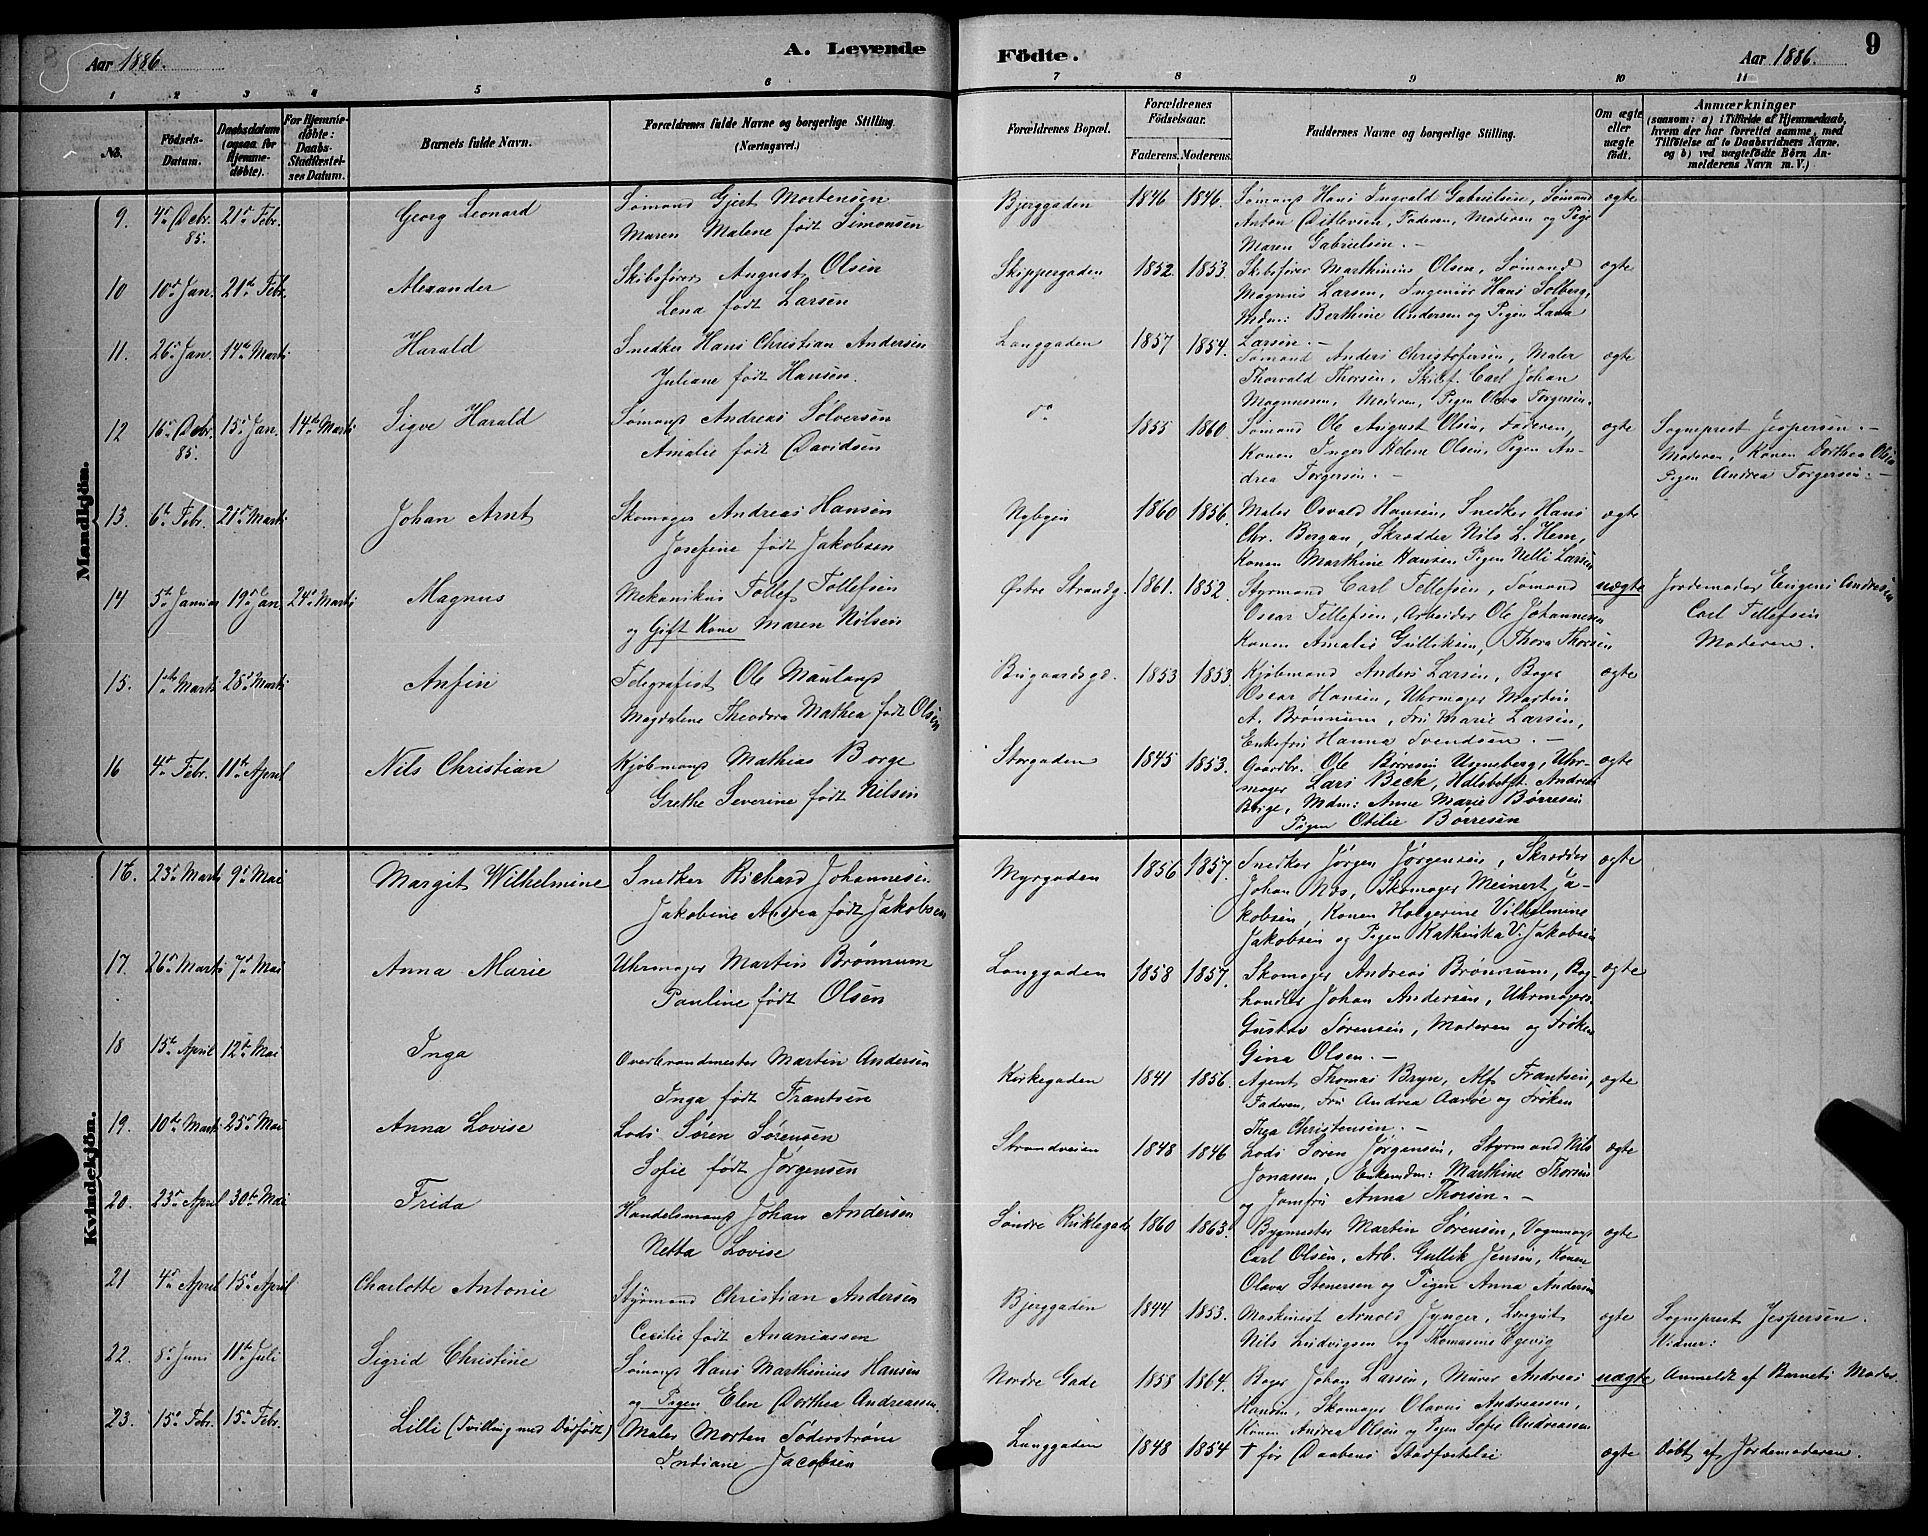 Aar 1886.
A. Levende
Födte.
Aar 1886.
9
1 2 3 4 5 6 7 8 9 10 11
No.
Födsels-
Datum.
Daabsdatum
(ogsaa for
Hjemme-
døbte).
For Hjemme-
døbte:
Daabs-
Stadfæstel-
ses Datum.
Barnets fulde Navn.
Forældrenes fulde Navne og borgerlige Stilling.
(Næringsvei.)
Forældrenes Bopæl.
Forældrenes
Födselsaar.
Faderens. Moderens.
Faddernes Navne og borgerlige Stilling.
Om ægte
eller
uægte
födt.
Anmærkninger
(saasom: a) i Tilfælde af Hjemmedaab,
hvem der har forrettet samme, med
Tilføielse af to Daabsvidners Navne,
og b) ved uægtefödte Börn An-
melderens Navn m. V.)
Mandkjön.
9. 4de Debr. 85. 21de Febr. Georg Leonard
Sømand Gjert Mortensen
Maren Malene født Simonsen
Bjerggaden 1846 1846
Sømand Hans Ingvald Gabrielsen, Sømand
Anton Ditlevsen, Faderen, Moderen og Pige
Maren Gabrielsen. —
ægte
10 10de Jan. 21de Febr. Alexander
Skibsfører August Olsen
Lena født Larsen
Skippergaden 1852 1853.
Skibsfører Marthinius Olsen, Sømand
Magnus Larsen, Ingeniør Hans Solberg,
Mdm: Berthine Andersen og Pigen Laura
Larsen. —
ægte
11. 26de Jan. 14de Marts Harald
Snedker Hans Christian Andersen
Juliane født Hansen.
Langgaden 1857 1854.
Sømand Anders Christofersen, Maler
Thorvald Thorsen, Skibsf. Carl Johan
Magnussen, Moderen, Pigen Olava Torgersen.
ægte
12 16de Debr. 85. 15de Jan. 14de Marts Sigve Harald
Sømand Andreas Sølversen
Amalie født Davidsen
do 1855 1860.
Sømand Ole August Olsen, Faderen,
Konen Inger Helene Olsen, Pigen An-
drea Torgersen. —
ægte
Sogneprest Jespersen. —
Moderen, Konen Dorthea Olsen
Pigen Andrea Torgersen. —
13. 6te Febr. 21de Marts Johan Arnt
Skomager Andreas Hansen
Josefine født Jakobsen
Nybyen 1860 1856.
Maler Osvald Hansen, Snedker Hans
Chr. Bergan, Skrædder Nils L. Hem,
Konen Marthine Hansen Pigen Nelli Larsen
ægte
14 5te Januar 19de Jan 24de Marts Magnus
Mekanikus Tollef Tollefsen
og Gift Kone Maren Nilsen
Østre Strandg. 1861. 1852.
Styrmand Carl Tellefsen, Sømand
Oscar Tellefsen, Arbeider Ole Johannesen
Konen Amalie Gulliksen, Thora Thorsen
uægte
Jordemoder Eugeni Andresen
Carl Tellefsen
Moderen.
15. 1ste Marts 28de Marts Anfin
Telegrafist Ole Mauland
Magdalene Theodora Mathea født Olsen
Brugaardsgd. 1853 1853.
Kjøbmand Anders Larsen, Bager
Oscar Hansen, Uhrmager Martin
A. Brønnum, Fru Marie Larsen,
Enkefru Hanna Svendsen. —
ægte
16 4de Febr. 11te April Nils Christian
Kjøbmand Mathias Borge
Grethe Severine født Nilsen
Storgaden 1845 1853.
Gaardbr. Ole Børresen, Uhr-
mager Lars Beck, Andreas
Borge, Mdm: Anne Marie Børresen
Pigen Otilie Børresen
ægte
Kvindekjön.
16. 23de Marts 9de Mai Margit Wilhelmine
Snedker Richard Johannesen
Jakobine Andrea født Jakobsen
Myrgaden 1856 1857.
Snedker Jørgen Jørgensen, Skrædder
Johan Næs, Skomager Meinert Ja-
kobsen, Konen Holgerine Vilhelmine
Jakobsen og Pigen Kathinka V. Jakobsen
ægte
17. 26de Marts 7de Mai Anna Marie
Uhrmager Martin Brønnum
Pauline født Olsen
Langgaden 1858 1857.
Skomager Andreas Brønnum, Bog-
handler Johan Andersen, Uhrmager
Gustav Sørensen, Moderen og Frøken
Gina Olsen. —
ægte
18 15de April 12te Mai Inga
Overbrandmester Martin Andersen
Inga født Frantsen
Kirkegaden 1841 1856.
Agent Thomas Bryn, Alf Frantsen,
Faderen, Fru Andrea Aarve og Frøken
Thea Christensen. —
ægte
19. 10de Marts 25de Mai Anna Lovise
Lods Søren Sørensen
Sofie født Jørgensen
Strandveien 1848 1846
Lods Søren Jørgensen, Styrmand Nils
Jonassen, Enkemdm: Marthine Thorsen
og Jomfru Anna Thorsen. —
ægte
20. 23de April 30te Mai Frida
Handelsmand Johan Andersen
Netta Lovise
Søndre 1860 1863.
Bygmester Martin Sørensen, Vognmand
Carl Olsen, Arb. Gullik Jensen, Konen
Olava Stenersen og Pigen Anna Andersen
ægte
21 4de April 15de April Charlotte Antonie
Styrmand Christian Andersen
Cecilie født Ananiassen
Bjerggaden 1844 1853.
Maskinist Arnold Lærgut
Nils Ludvigsen og
ægte
Sogneprest Jespersen.
Vidner:
22. 8de Juni 11te Juli Sigrid Christine
Sømand Hans Marthinius Hansen
og Pigen Elen Dorthea Andreassen.
Nordre Gade 1858 1864.
Bager Johan Larsen, Murer Andreas
Hansen, Skomager Olavus Andreassen,
Konen Andrea Olsen og Pigen Sofie Andreassen
uægte
Anmeldt af Barnets Moder.
23. 15de Febr. 15de Febr. Lilli (Tvilling med Dødfødt)
Maler Morten Söderstrøm
Indiane Jacobsen
Langgaden 1848 1854
† før Daabens Stadfæstelse
ægte
Døbt af Jordemoderen.